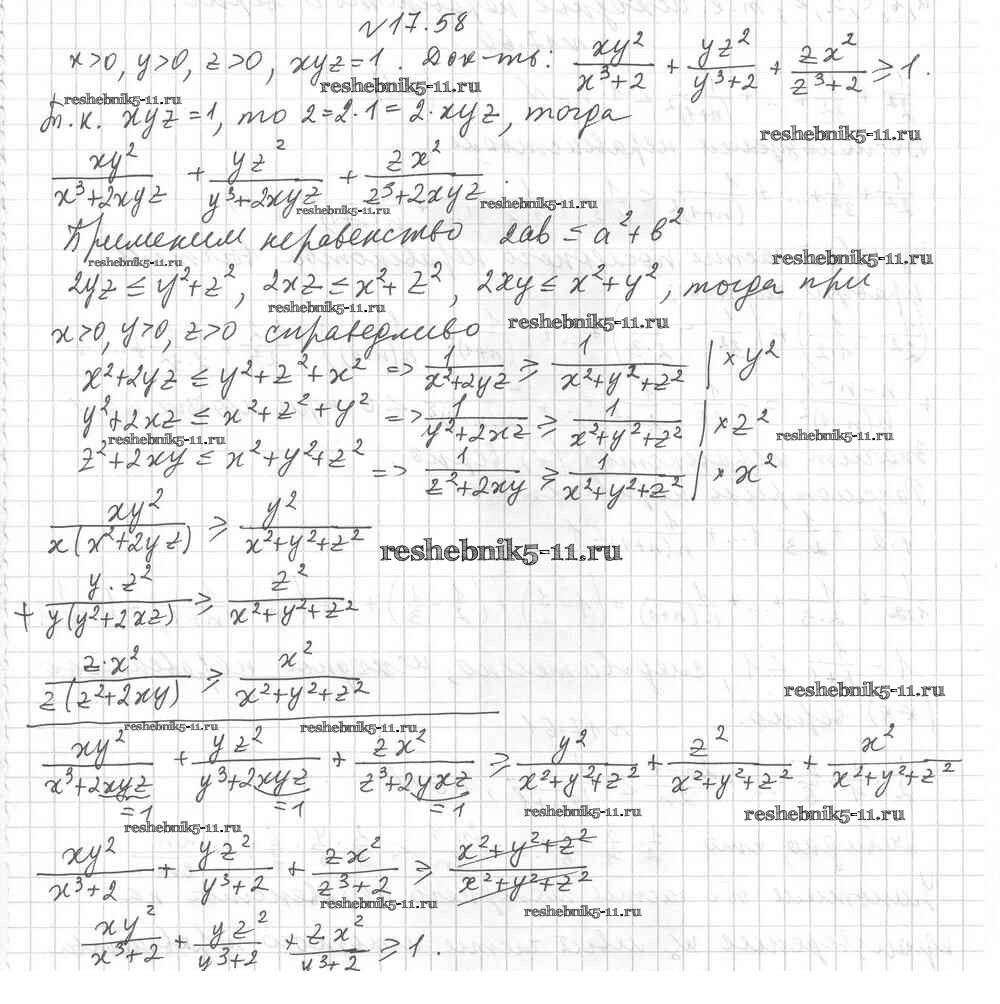 №17.58
x>0, y>0, z>0, xyz=1. Док-ть: xy²/(x³+2) + yz²/(y³+2) + zx²/(z³+2) ≥ 1.
reshebnik5-11.ru
reshebnik5-11.ru
Т.к. xyz=1, то 2=2·1=2·xyz, тогда
reshebnik5-11.ru
xy²/(x³+2xyz) + yz²/(y³+2xyz) + zx²/(z³+2xyz).
reshebnik5-11.ru reshebnik5-11.ru
Применим неравенство 2ab ≤ a²+b²
reshebnik5-11.ru reshebnik5-11.ru
2yz ≤ y²+z², 2xz ≤ x²+z², 2xy ≤ x²+y², тогда при
reshebnik5-11.ru reshebnik5-11.ru
x>0, y>0, z>0 справедливо
x²+2yz ≤ y²+z²+x² => 1/(x²+2yz) ≥ 1/(x²+y²+z²) | × y²
y²+2xz ≤ x²+z²+y² => 1/(y²+2xz) ≥ 1/(x²+y²+z²) | × z²
reshebnik5-11.ru reshebnik5-11.ru
z²+2xy ≤ x²+y²+z² => 1/(z²+2xy) ≥ 1/(x²+y²+z²) | × x²
xy²/(x(x²+2yz)) ≥ y²/(x²+y²+z²)
reshebnik5-11.ru
+ y·z²/(y(y²+2xz)) ≥ z²/(x²+y²+z²)
z·x²/(z(z²+2xy)) ≥ x²/(x²+y²+z²)
reshebnik5-11.ru
reshebnik5-11.ru reshebnik5-11.ru
xy²/(x³+2xyz) + yz²/(y³+2xyz) + zx²/(z³+2yxz) ≥ y²/(x²+y²+z²) + z²/(x²+y²+z²) + x²/(x²+y²+z²)
=1 =1 =1
reshebnik5-11.ru reshebnik5-11.ru reshebnik5-11.ru
xy²/(x³+2) + yz²/(y³+2) + zx²/(z³+2) ≥ (x²+y²+z²)/(x²+y²+z²)
reshebnik5-11.ru reshebnik5-11.ru
xy²/(x³+2) + yz²/(y³+2) + zx²/(y³+2) ≥ 1.